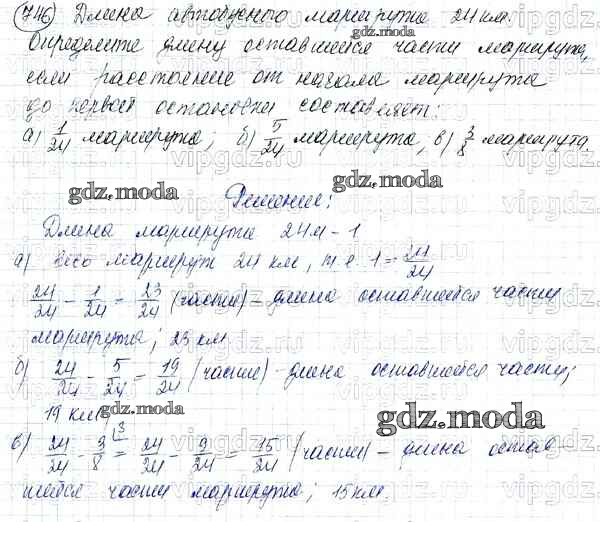 746) Длина автобусного маршрута 24 км.
Определите длину оставшейся части маршрута,
если расстояние от начала маршрута
до первой остановки составляет:
а) 1/24 маршрута; б) 5/24 маршрута, в) 3/8 маршрута.
gdz.moda
gdz.moda
gdz.moda
Решение:
Длина маршрута 24 м - 1
а) Весь маршрут 24 км, т.е. 1 = 24/24
24/24 - 1/24 = 23/24 (части) - длина оставшейся части
маршрута; 23 км
б) 24/24 - 5/24 = 19/24 (части) - длина оставшейся части;
19 км
gdz.moda
gdz.moda
в) 24/24 - 3/8 ⌊3 = 24/24 - 9/24 = 15/24 (части) - длина остав
шейся части маршрута; 15 км.
gdz.moda